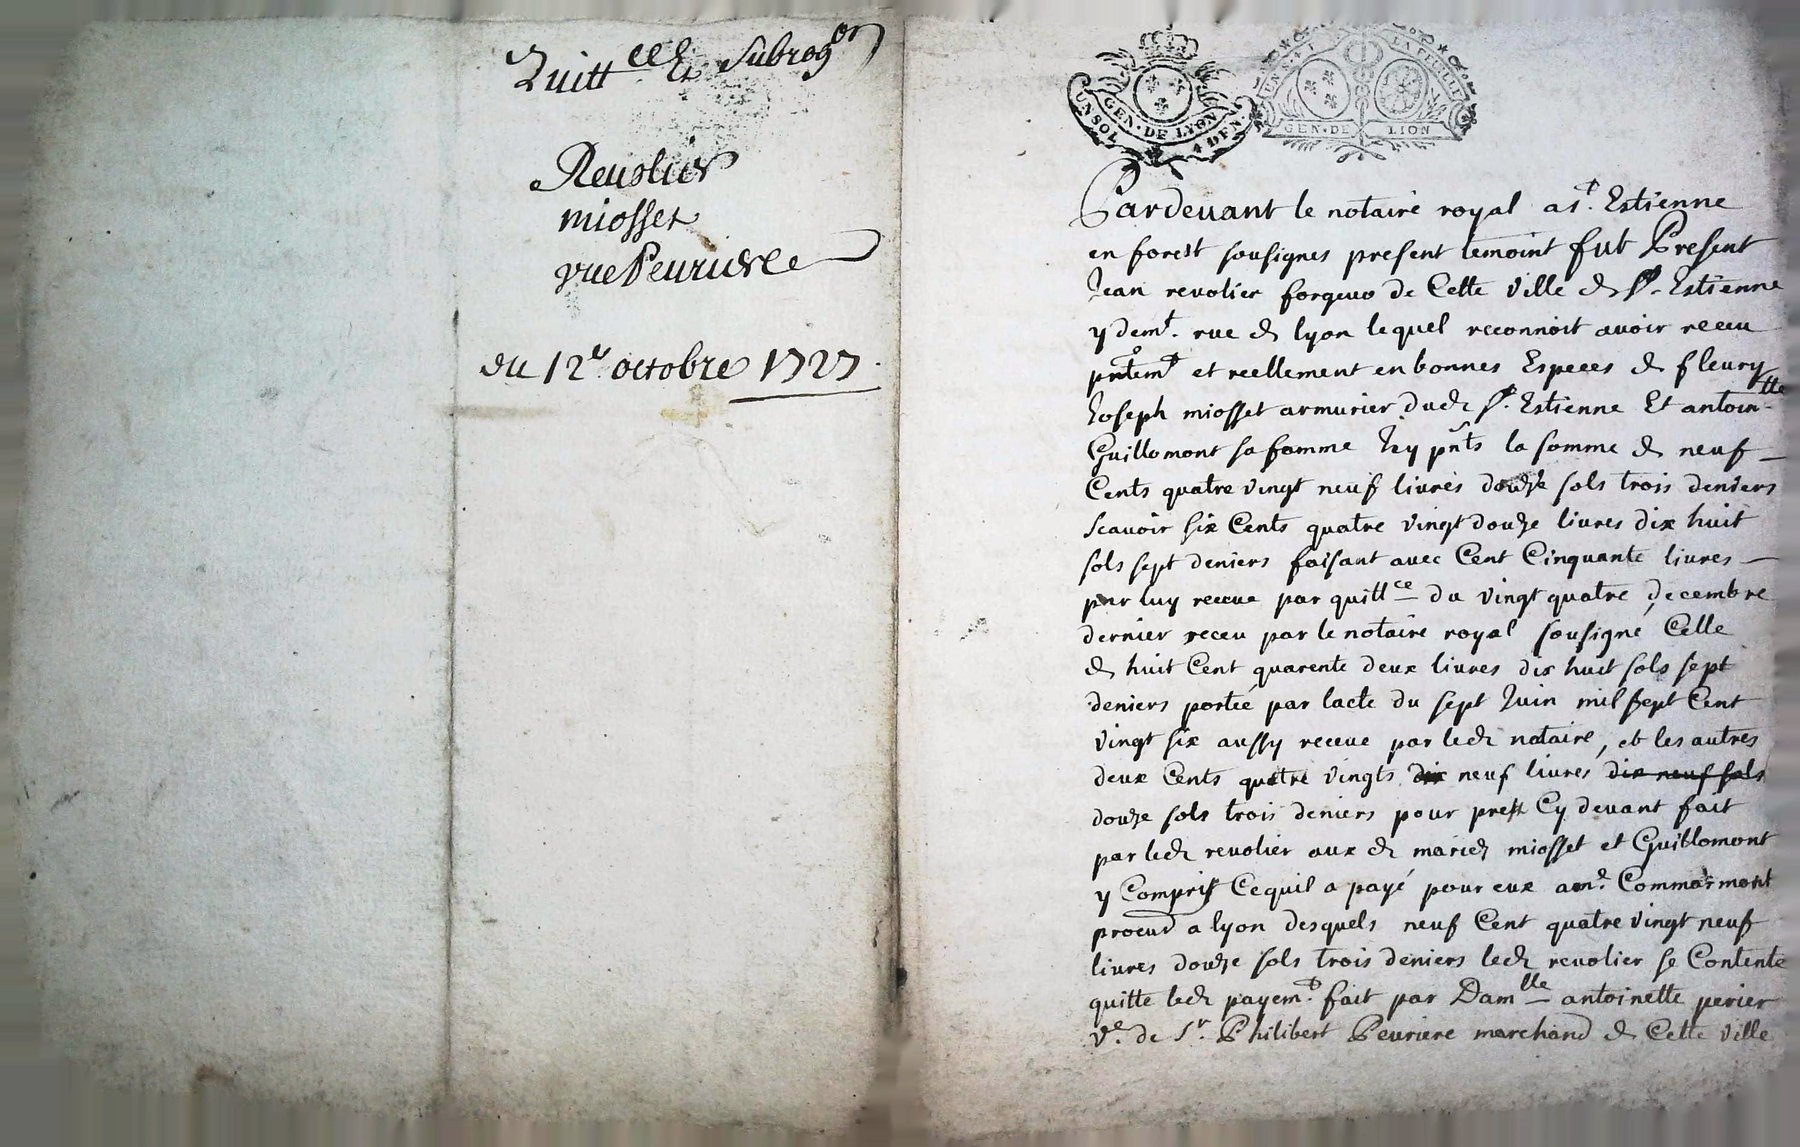 Quitt.ce Et Subrog.on
Reuolier
miosset
vue Peuriere
du 12.e octobre 1727.
UN SOL GEN. DE LYON 4 DEN.
GEN. DE LION
Pardeuant le notaire royal a St. Estienne
en forest sousignes present temoint fut Present
Jean reuolier forgeur de Cette Ville de St. Estienne
y demt. rue de lyon lequel reconnoit auoir receu
pntemt et reellement en bonnes Especes de fleury
Joseph miosset armurier dud. St. Estienne Et antoin-lle
Guillomont sa famme Icy pnts la somme de neuf
Cents quatre Vingt neuf liures douze sols trois deniers
scauoir six Cents quatre Vingt douze liures dix huit
sols sept deniers faisant auec Cent Cinquante liures
par luy receue par quitt.ce du Vingt quatre decembre
dernier receu par le notaire royal sousigné, Celle
de huit Cent quarente deux liures dix huit sols sept
deniers porteé par lacte du sept Juin mil sept Cent
Vingt six aussy receue par led. notaire, et les autres
deux Cents quatre Vingts dix neuf liures dix neuf sols
douze sols trois deniers pour prest Cy deuant fait
par led. reuolier aux d. mariez miosset et Guillomont
y Compris Cequil a payé pour eux a me. Commarmont
procur a lyon desquels neuf Cent quatre Vingt neuf
liures douze sols trois deniers led. reuolier se Contente
quitte led. payemt. fait par Damlle antoinette perier
Ve. de Sr. Philibert Peuriere marchand de Cette Ville